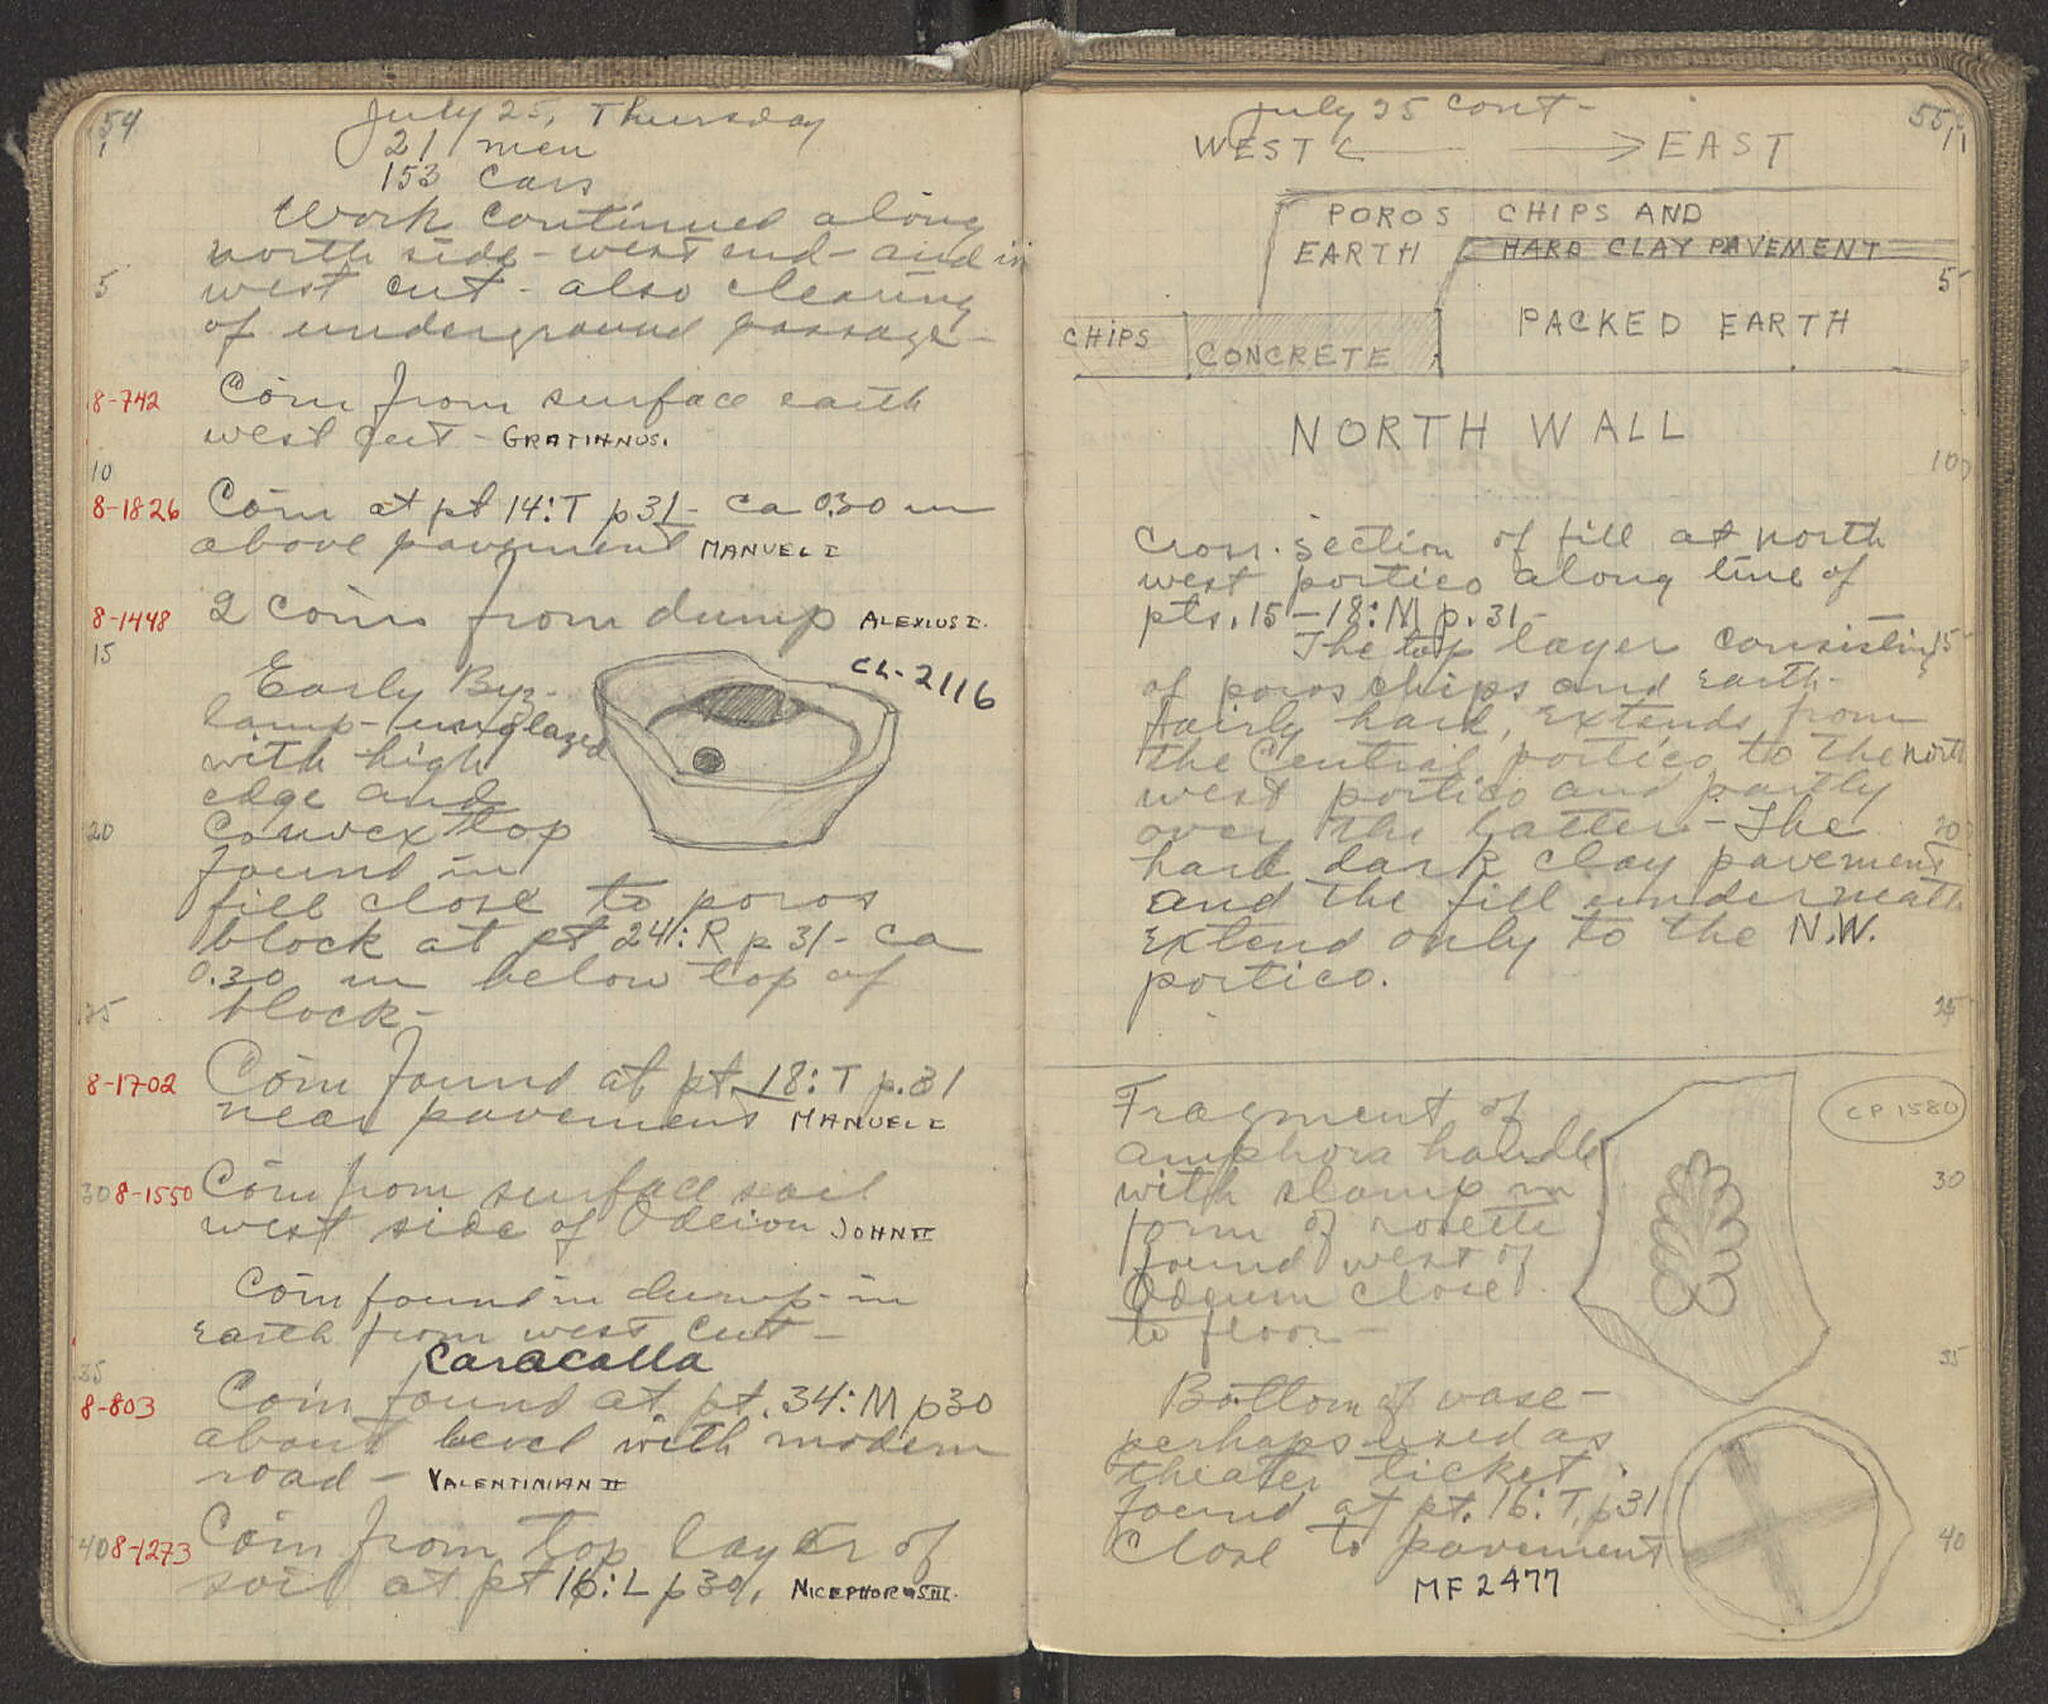 54
July 25, Thursday
1
21 men
153 cars
Work continued along
north side - west end - and in
5 west cut - also clearing
of underground passage -
8-742 Coin from surface earth
west cut - GRATIANUS.
10
8-1826 Coin at pt 14:T p31 - ca 0.30 m
above pavement MANUEL I
8-1448 2 coins from dump ALEXIUS I.
15
Early Byz. CL-2116
lamp - unglazed
with high
edge and
20 convex top
found in
fill close to poros
block at pt 24:R p 31 - ca
0.30 m below top of
25 block -
8-1702 Coin found at pt. 18:T p.31
near pavement MANUEL I
30 8-1550 Coin from surface soil
west side of Odeion JOHN II
Coin found in dump - in
earth from west cut -
Caracalla
35
8-803 Coin found at pt. 34:M p30
about level with modern
road - VALENTINIAN II
40 8-1273 Coin from top layer of
soil at pt 16:L p30, NICEPHORUS III.
July 25 cont - 55
WEST ← → EAST 1
POROS CHIPS AND
EARTH HARD CLAY PAVEMENT
5
CHIPS CONCRETE PACKED EARTH
NORTH WALL
10
Cross-section of fill at north
west portico along line of
pts. 15-18:M p.31 -
The top layer consisting 15
of poros chips and earth -
fairly hard, extends from
the Central portico to the north
west portico and partly
over the latter - The 20
hard dark clay pavement
and the fill underneath
extend only to the N.W.
portico.
25
Fragment of CP 1580
amphora handle
with stamp in 30
form of rosette
found west of
Odeum close
to floor -
35
Bottom of vase -
perhaps used as
theater ticket.
found at pt. 16:T, p31
close to pavement 40
MF 2477